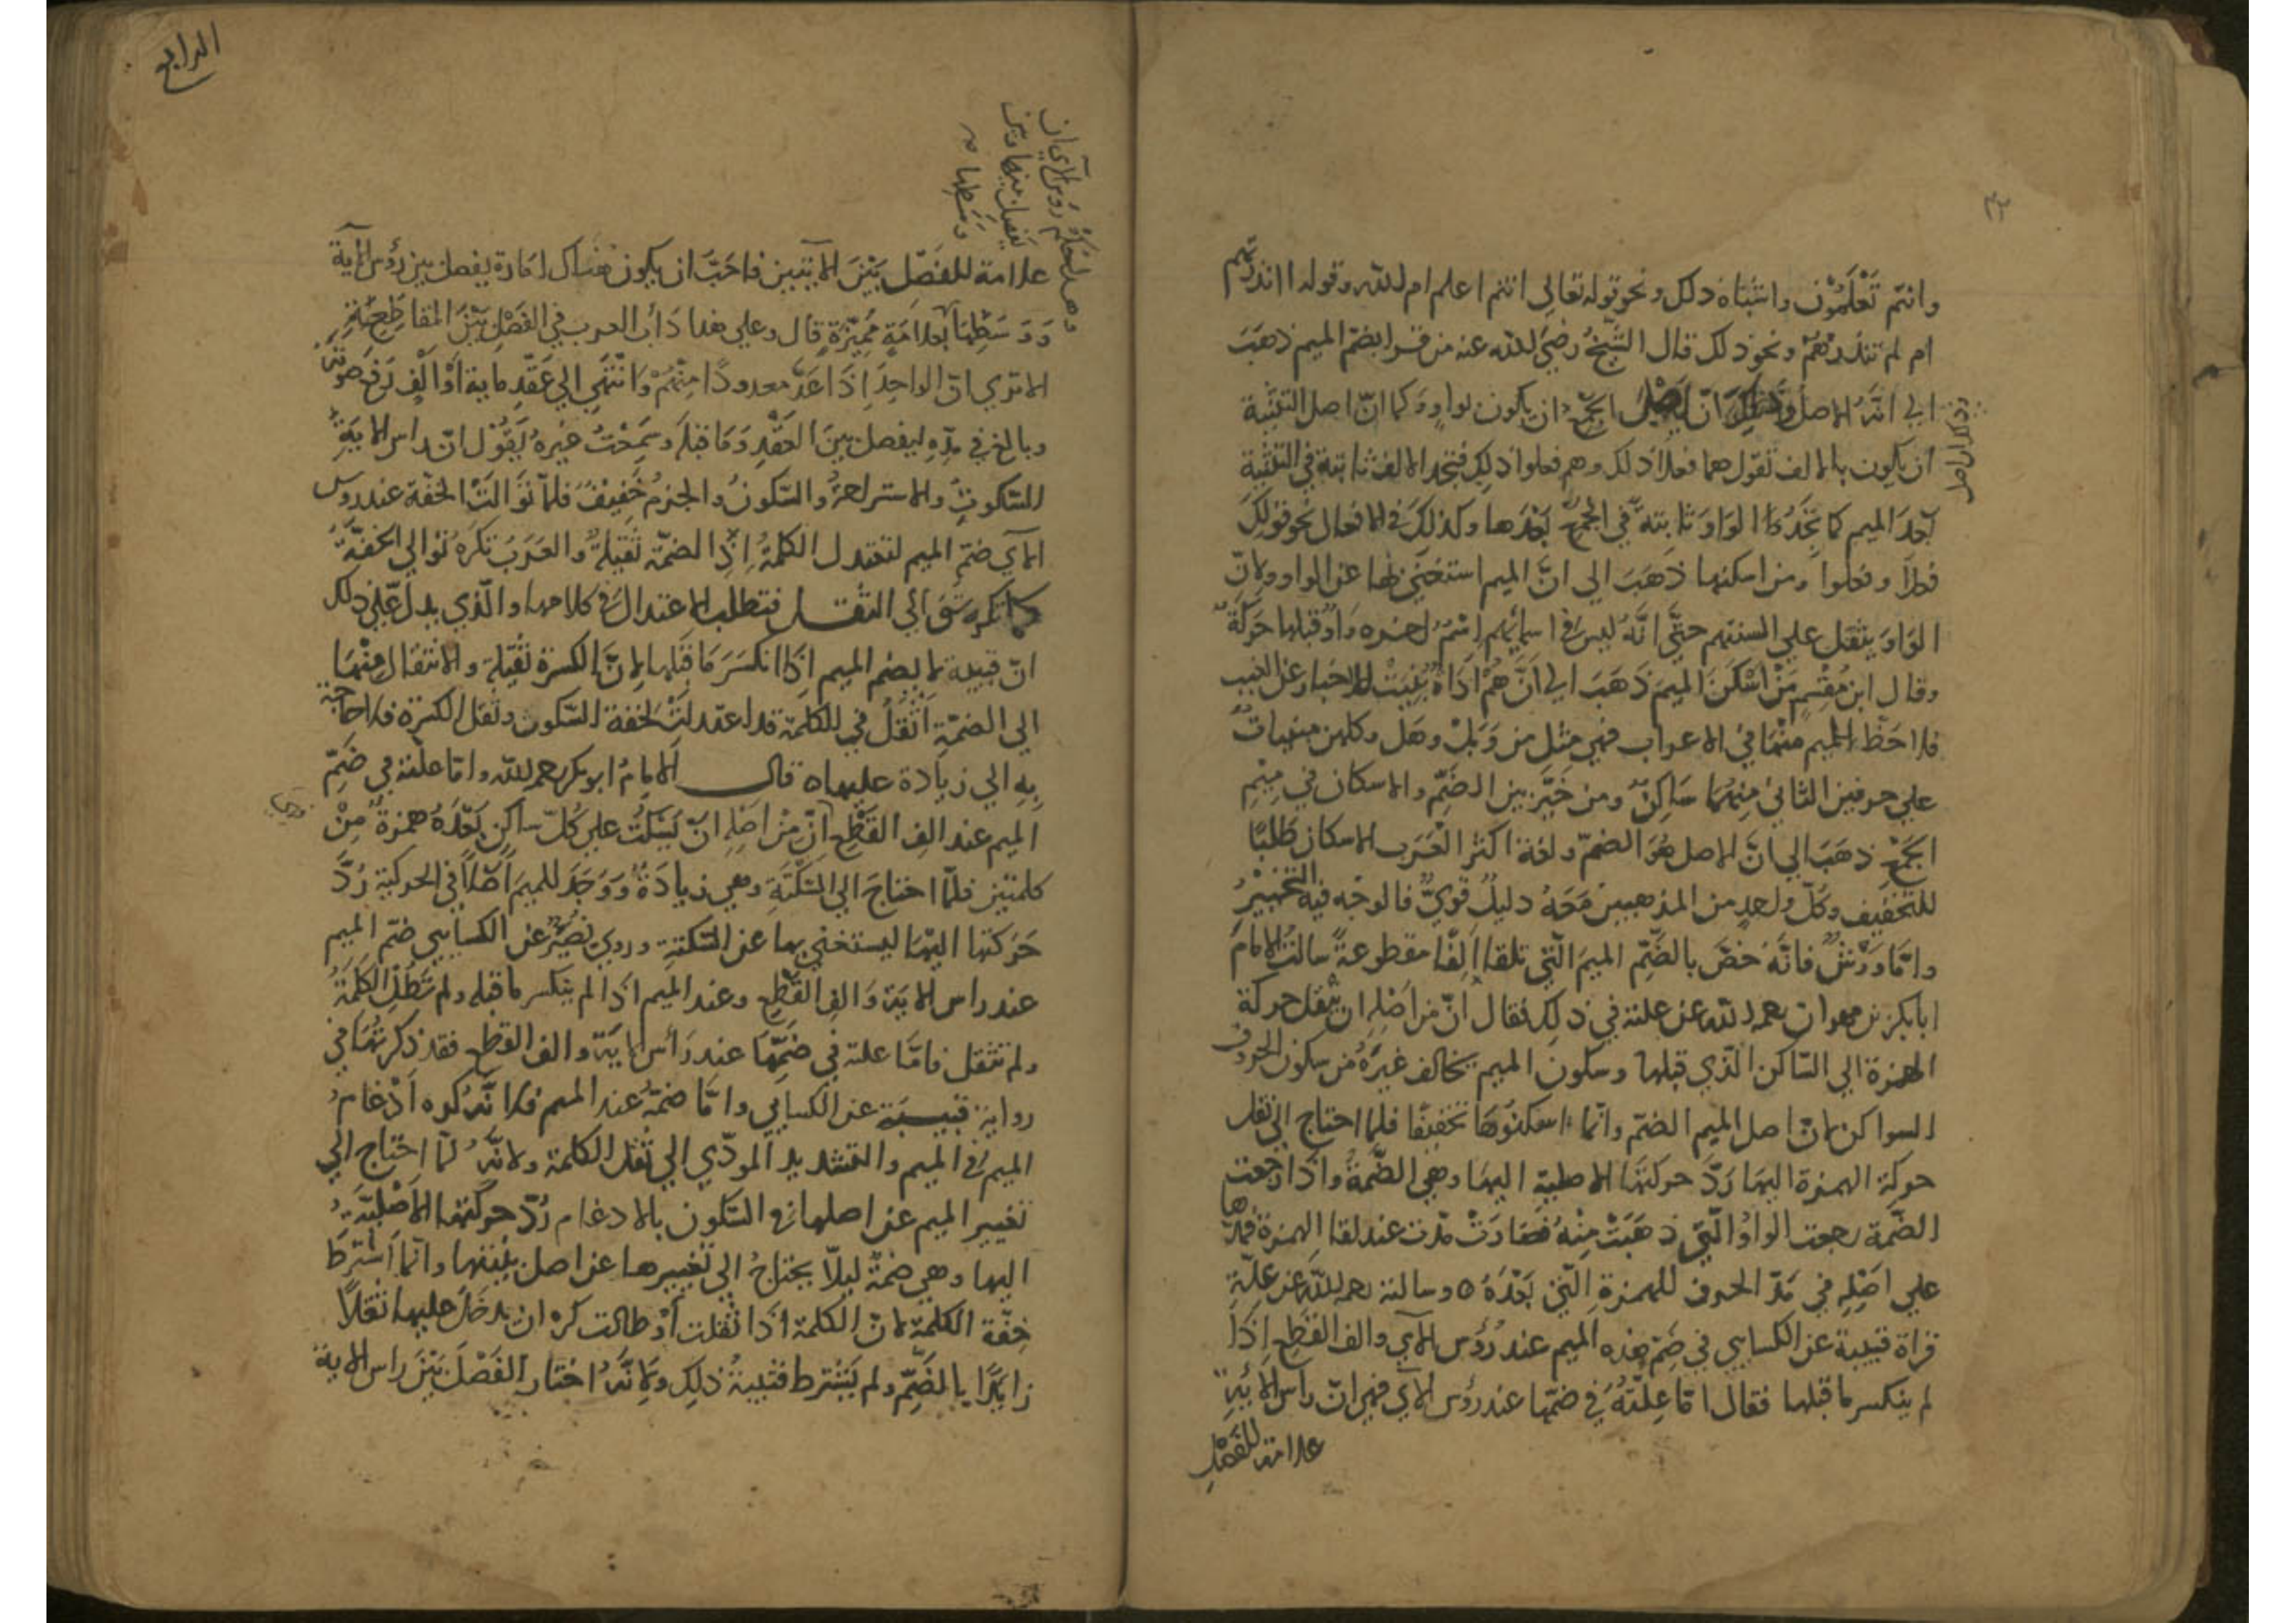 وانتم تَعْلَمُوْن واشباه ذلك ونحو قوله تعالى انتم اعلم ام الله وقوله اانذرتهم
ام لم تنذرهم ونحو ذلك قال الشيخ رضي الله عنه من قرا بضم الميم ذهَبَ
الى انّه الاصل وذلك انّ اصل الجمع ان يكون بواوٍ كما انّ اصل التثنية
وذلك ان اصل
ان يكون بالالف تقول هما فعلا ذلك وهم فعلوا ذلك فتجد الالف ثابتة في التثنية
بعدَ الميم كما تجد الواو ثابتة في الجمع بَعْدَها وكذلك في الافعال نحو قولك
فعلا وفعلوا ومن اسكنها ذهَبَ الى انّ الميم استغني بها عن الواو ولانّ
الوَاوَ يثقل على السنتهم حتّى انّهُ ليس في اسمائهم اسْمٌ اخره وَاوٌ قبلها حَركةٌ
وقال ابن مقسم مَنْ اسْكَنَ الميمَ ذَهَبَ الى اَنَّ هُمْ اداةٌ بُنِيَتْ للاخبار عن الغيب
فلا حَظَّ للميم منها في الاعراب فهي مثل مَن وَبَلْ وهَل وكلهن مبنيات
على حرفين الثاني منهما سَاكِنٌ ومن خَيَّر بين الضمِّ والاسكان في مِيْمِ
الجَمْع ذهَبَ الى انّ الاصل هُوَ الضمّ ولغة اكثر العَرَب الاسكان طَلَبًا
للتخفيف وكلّ واحدٍ من المذهبين مَعَهُ دليلٌ قويٌّ فالوجْه فيه التخييرُ
وامّا وَرْشٌ فانّهُ خصّ بالضّمِّ الميمَ الّتي تلقا اَلِفًا مقطوعةً سالتُ الامامَ
ابا بكر بن مهران رحمه الله عن علته في ذلك فقال انّ من اصْلِهِ ان ينقل حركة
الهمزة الى السّاكن الّذي قبلها وسكون الميم يخالف غيرَهُ من سكون الحروف
السواكن لانّ اصل الميم الضمّ وانّما اسكنُوهَا تخفيفًا فلما احتاج الى نقل
حركة الهمزة اليها رَدَّ حركتَها الاصلية اليها وهي الضّمةُ واذا رجعت
الضّمة رجعت الواوُ الّتي ذَهَبَتْ مِنْهُ فصَادَتْ مدّت عند لقا الهمزة فمدّها
على اصْلِهِ في مَدّ الحروف للهمزةِ الّتي بَعْدَهُ ه وسالته رحمه الله عن علّة
قراة قتيبة عن الكسايي في ضمِّ هذه الميم عند رُؤس الآي والف القطعِ اِذَا
لم ينكسر ما قبلها فقال امّا عِلّتُهُ في ضمّها عند رؤس الآي فهي انّ راس الايةِ
علامة للفَصْلِ
الرابع
وهذا لحكم رؤس الآي ان
يفصل بينها وبين
وسَطِها
علامة للفَصْلِ بَيْنَ الايتين فاحَبَّ ان يكون هناك امارة يفصل بين رؤس الاية
وَ وَسَطِهَا بعلامَةٍ مُميّزةٍ قال وعلى هذا دَأب العرب في الفَصْل بَيْنَ المقاطع
الا ترى انّ الواحِدَ اذَا عَدّ معدودًا مِنْهُمْ وانْتَهى الى عَقْدِ ماية اَوْ الْفٍ رَفعَ صَوْتَه
وبالغ في مدِّهِ ليفصل بينَ العَقْدِ وَمَا قبله وسَمِعْتُ غيرهُ يَقُوْل انّ راس الايةِ
للسّكوتِ والاستراحةِ والسّكونُ والجزمُ خَفِيْفٌ فلمّا تَوَالَتْ الخفّة عند روس
الآي ضمّ الميم لتعتدل الكلمةُ اذِ الضمّة ثَقيلةٌ والعَرَبُ تكرهُ تَوالي الخفّةِ
كما تكره توالي الثقـل فتطلب الاعتدال في كلامها والّذي يدلّ على ذلك
انّ قتيبة لا يضم الميم اذَا انكسَرَ مَا قَبْلها لانّ الكسرة ثقيلة والانتقال مِنْهَا
الى الضمّة اَثْقَلُ في الكلمة قد اعتدلتْ بخفة السّكون وثقل الكسرة فلا حاجة
بِهِ الى زيادة عليها ه قال الامامُ ابو بكر رحمه الله وامّا علّته في ضمِّ
الميم عند الف القَطْع انّ مِنْ اصْلِهِ انّ يَسْكُتَ على كُلّ ساكن بَعْدَهُ همزةٌ مِنْ
كلمتين فلمّا احتاجَ الى السَّكْتَةِ وهي زيادَةٌ وَوَجَدَ للميم اَصْلاً في الحركة رَدَّ
حَرَكتَها اليْهَا ليستغني بها عن السّكتةِ وروى نصَيْرٌ عن الكسايي ضمّ الميم
عند راس الاية وَالفِ القَطْعِ وعند الميم اذا لم ينكسر ما قبله ولم تَطُلِ الكَلِمَةُ
ولم تثقل فامّا علته في ضَمِّهَا عند رَأس الاية والف القطع فقد ذكرتُها في
رواية قتيبة عن الكسايي وامّا ضمّهُ عند الميم فلانّهُ كره ادْغامَ
الميم في الميم والتشديد المودّي الى ثقل الكلمة ولانّهُ لمّا احتاج الى
تغيير الميم عن اصلها في السّكون بالادغام رُدّ حركتها الاَصْليّةَ
اليها وهي ضمةٌ ليلّا يحتاجُ الى تغييرها عن اصل بنيتها وانّما اشترط
خِفّة الكلمة لانّ الكلمة اذَا ثقلت اَوْ طالت كره ان يدخلَ عليها ثقلاً
زايدًا بالضّمِّ ولم يَشْترط قتيبةُ ذلك ولانّهُ اختار الفَصْلَ بَيْنَ راس الاية